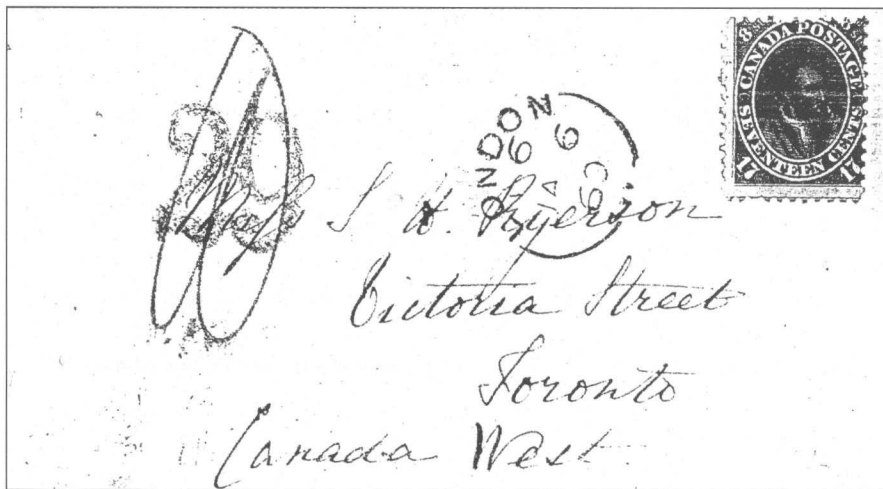 8 CANADA POSTAGE
SEVENTEEN CENTS
17 17
20
ONDON
6 6
S H. Ryerson
Victoria Street
Toronto
Canada West